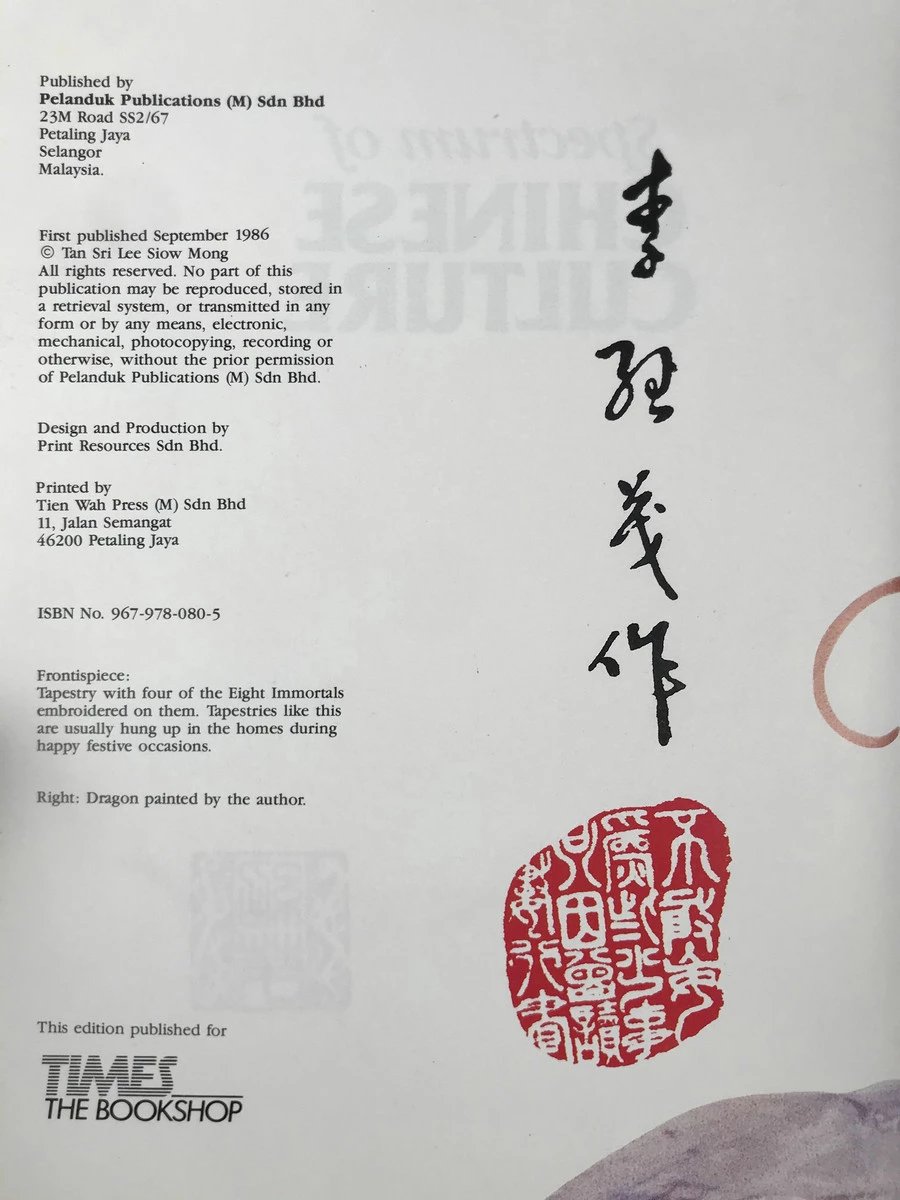 Published by
Pelanduk Publications (M) Sdn Bhd
23M Road SS2/67
Petaling Jaya
Selangor
Malaysia.
First published September 1986
© Tan Sri Lee Siow Mong
All rights reserved. No part of this
publication may be reproduced, stored in
a retrieval system, or transmitted in any
form or by any means, electronic,
mechanical, photocopying, recording or
otherwise, without the prior permission
of Pelanduk Publications (M) Sdn Bhd.
Design and Production by
Print Resources Sdn Bhd.
Printed by
Tien Wah Press (M) Sdn Bhd
11, Jalan Semangat
46200 Petaling Jaya
ISBN No. 967-978-080-5
Frontispiece:
Tapestry with four of the Eight Immortals
embroidered on them. Tapestries like this
are usually hung up in the homes during
happy festive occasions.
Right: Dragon painted by the author.
This edition published for
TIMES
THE BOOKSHOP
Spectrum of
CHINESE
CULTURE
李紹茂作
不敢妄
爲些子事
只因曾讀
數行書